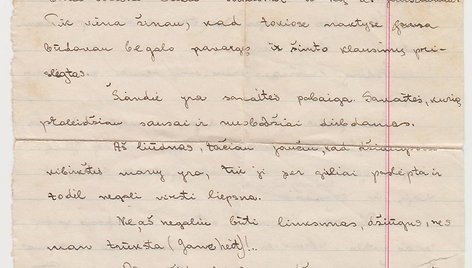 Tik viena žinau, kad tokiose naktyse gausa
būdavau be galo pavargęs ir šimto klausimų pri-
slėgtas.
Šiandie yra savaitės pabaiga. Savaitės, kurią
praleidžiau sausai ir nuobodžiai dirbdamas.
Aš liūdnas, tačiau jaučiu, kad džiaugsmo
kibirkštės many yra, tik ji per giliai paslėpta ir
todėl negali virsti liepsna.
Ne aš negaliu būti linksmas, džiūgus, nes
man trūksta (Gawe heit)!..